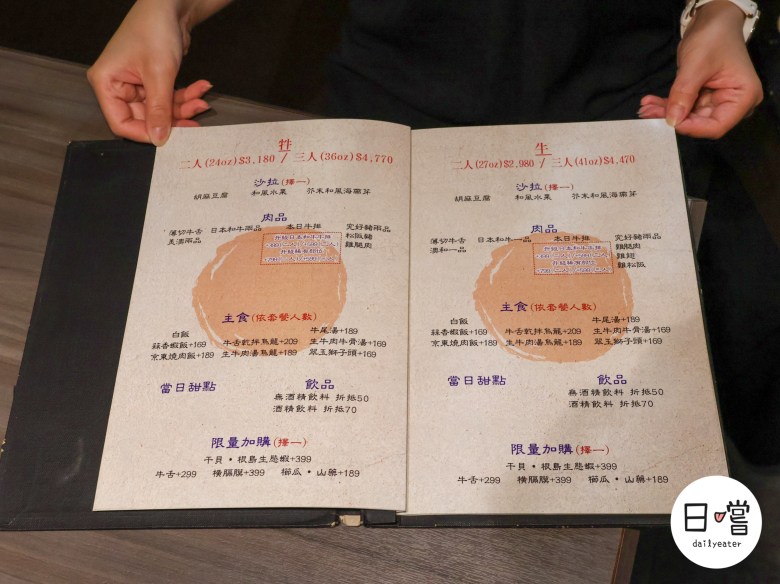 牲
二人(24oz)$3,180 / 三人(36oz)$4,770
沙拉(擇一)
胡麻豆腐 和風水果 芥末和風海藻芽
肉品
薄切牛舌 日本和牛兩品 本日牛排 究好豬兩品
美濃兩品 松阪豬
雞腿肉
主食(依套餐人數)
白飯 牛尾湯+189
蒜香蝦飯+169 牛舌乾拌烏龍+209 生牛肉牛骨湯+169
京東燒肉飯+189 生牛肉湯烏龍+189 翠玉獅子頭+169
當日甜點 飲品
無酒精飲料 折抵50
酒精飲料 折抵70
限量加購(擇一)
干貝・根島生態蝦+399
牛舌+299 橫膈膜+399 櫛瓜・山藥+189
牛
二人(27oz)$2,980 / 三人(41oz)$4,470
沙拉(擇一)
胡麻豆腐 和風水果 芥末和風海藻芽
肉品
薄切牛舌 日本和牛一品 本日牛排 究好豬兩品
濃和一品 雞腿肉
雞翅
雞松阪
主食(依套餐人數)
白飯 牛尾湯+189
蒜香蝦飯+169 牛舌乾拌烏龍+209 生牛肉牛骨湯+169
京東燒肉飯+189 生牛肉湯烏龍+189 翠玉獅子頭+169
當日甜點 飲品
無酒精飲料 折抵50
酒精飲料 折抵70
限量加購(擇一)
干貝・根島生態蝦+399
牛舌+299 橫膈膜+399 櫛瓜・山藥+189
日嚐
dailyeater